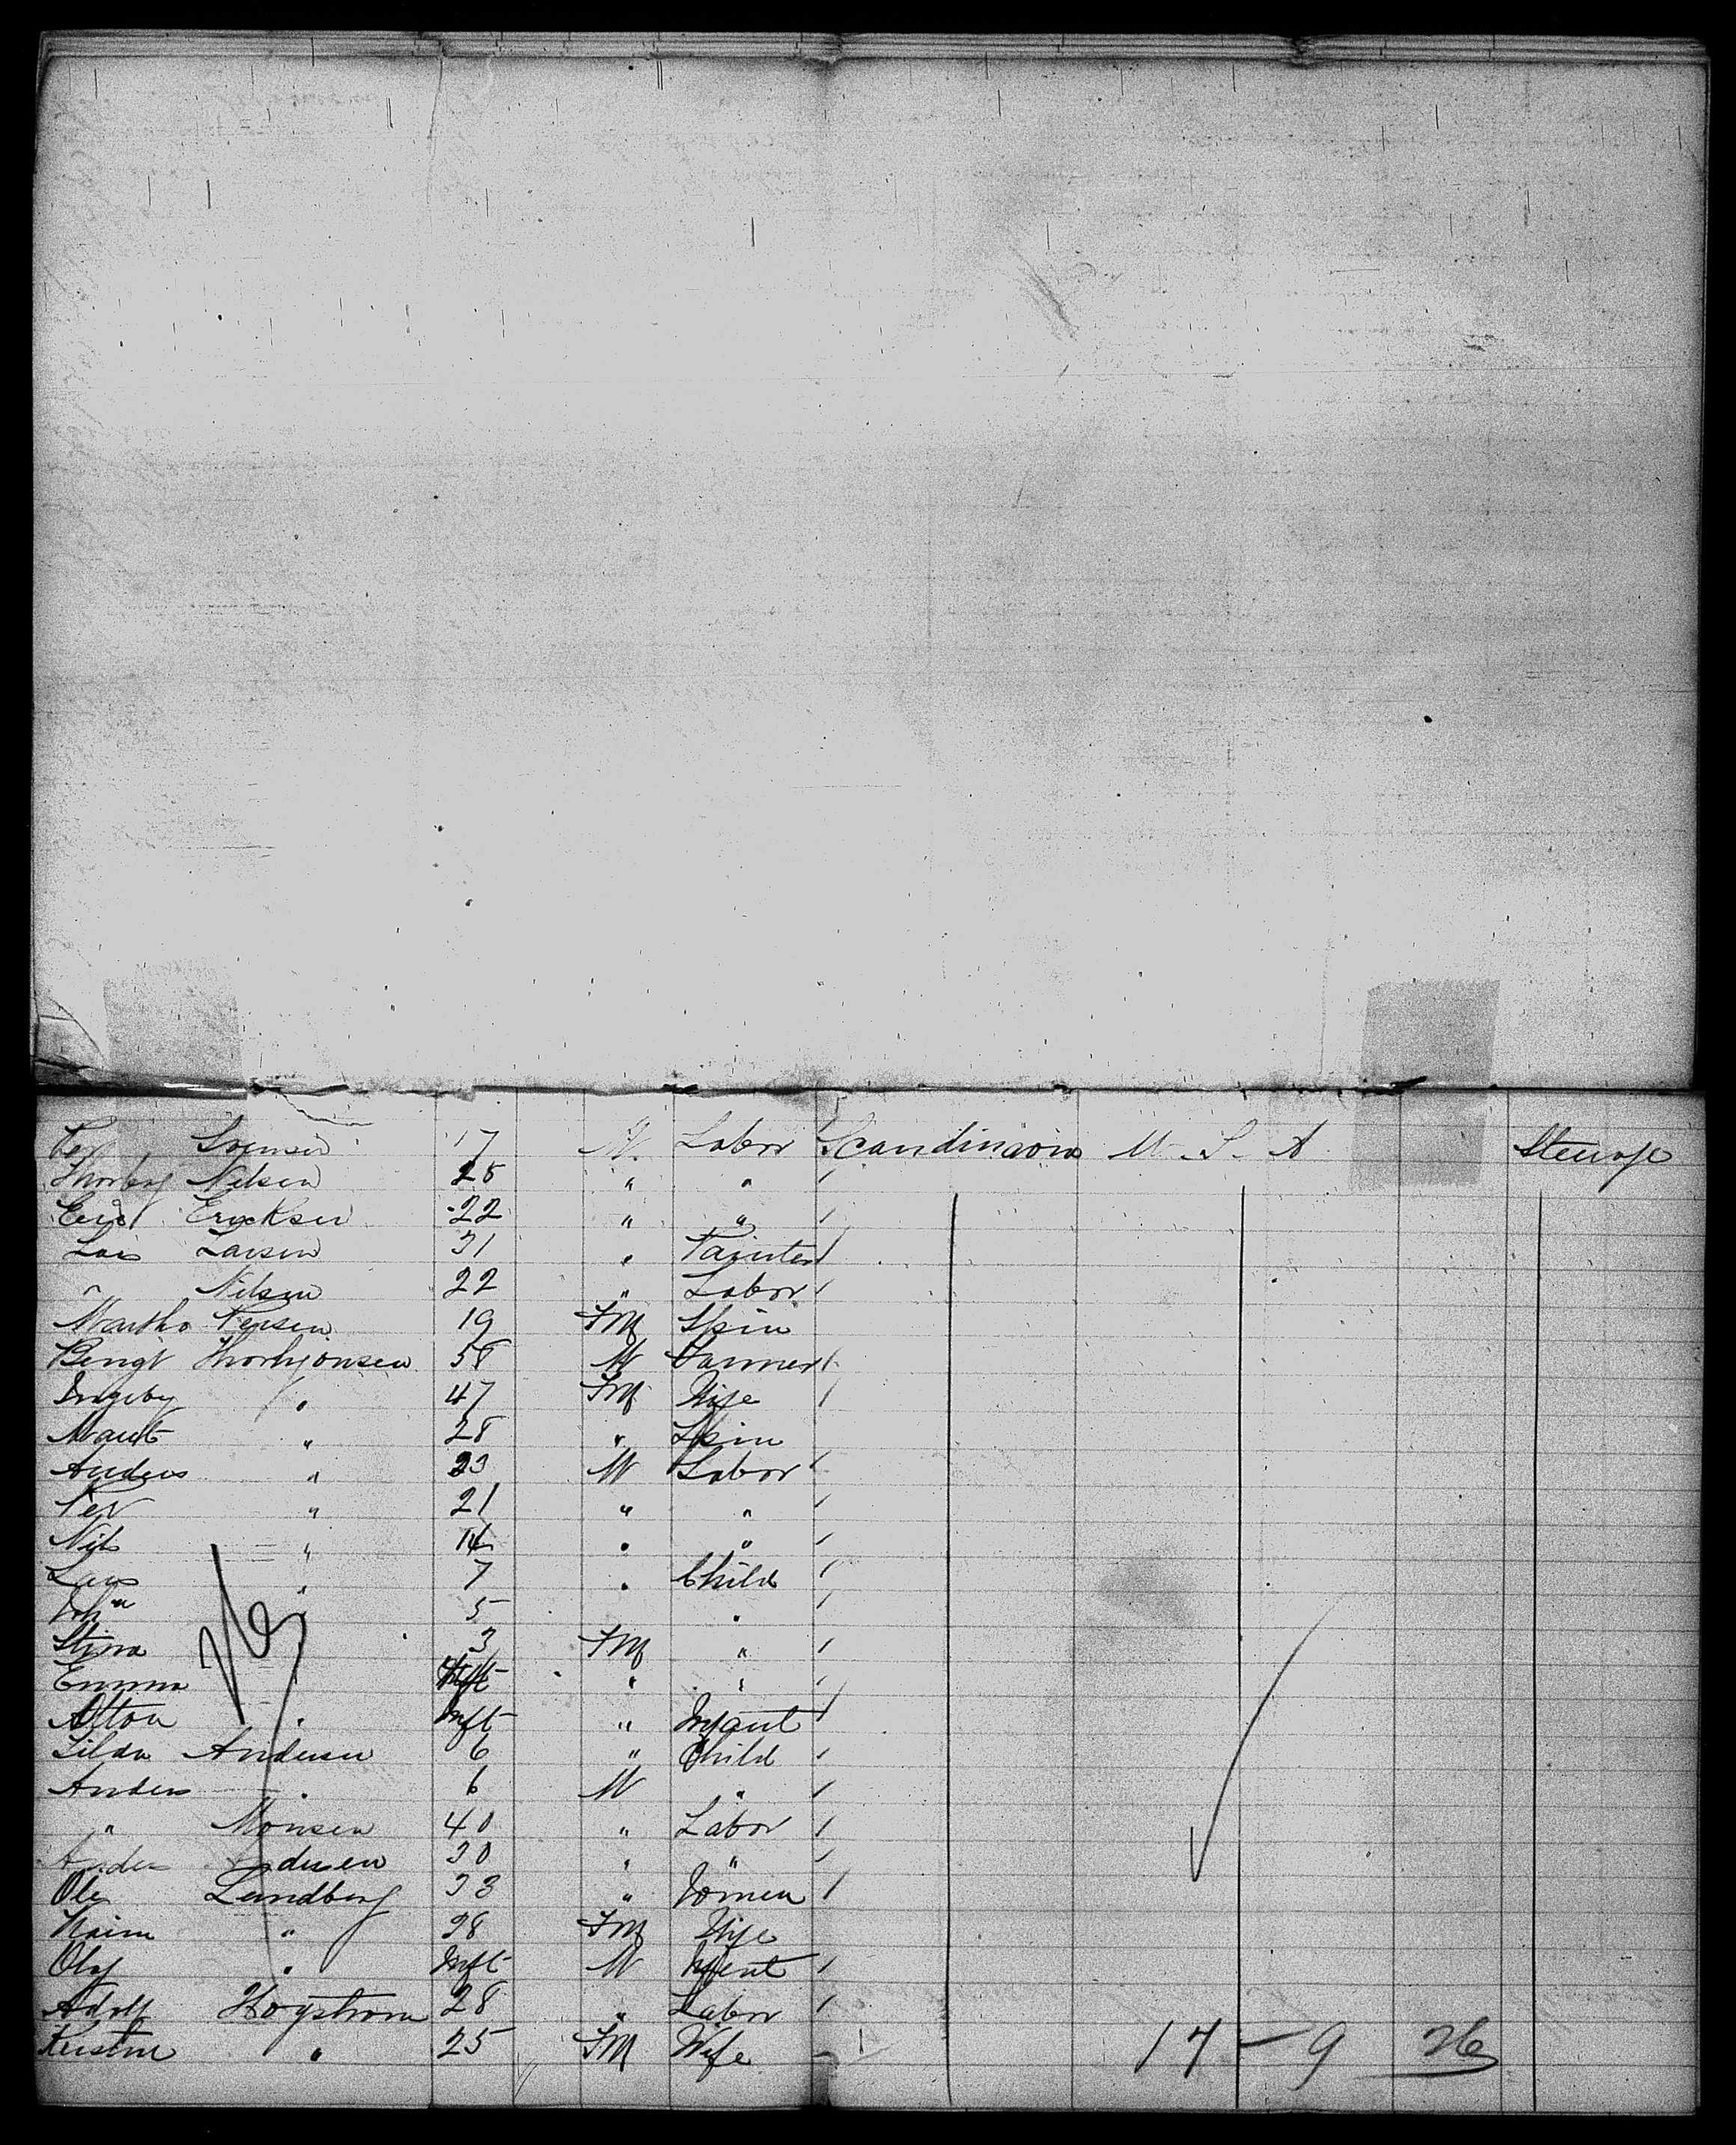 Per Svensen 17 M. Labor Scandinavia U. S. A Steerage
Nilsen 25 " "
Eric Ericksen 22 " "
Lars Larsen 31 " Painter
" Nilsen 22 " Labor
Martha Persen 19 FM Spin
Bengt Thorbjonsen 58 M Farmer
Ingeby " 47 FM Wife
Marit " 28 " Spin
Anders " 23 M Labor
Per " 21 " "
Nils " "  "
Lars " 7 " Child
" 5 "
Stina 3 FM "
Emma " "
" Inft " Infant
Andersen 6 " Child
Anders " 6 M "
" Monsen 40 " Labor
Andersen 30 " "
Ole Lundberg 33 "
" 28 FM Wife
Olaf " Inft M Infent
Adolf Hogstrom 28 " Labor
Kerstin " 25 FM Wife
17 - 9 26